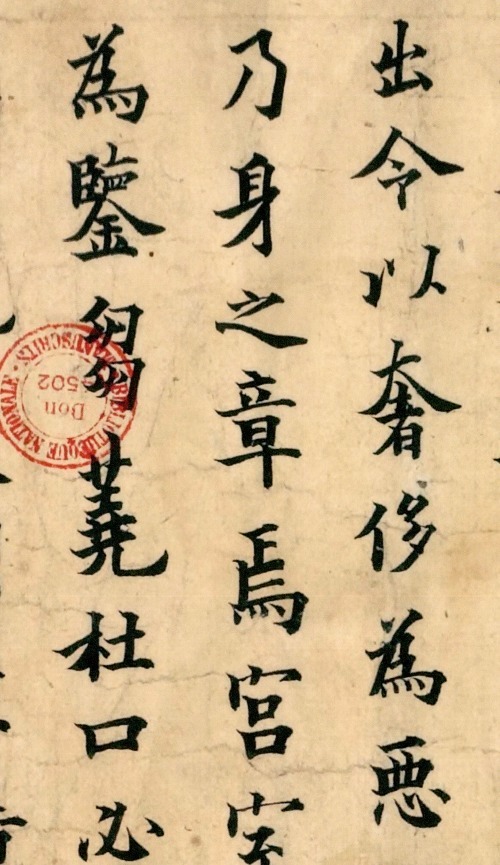 出令以奢侈為悪
乃身之章焉宮室
為鑒芻蕘杜口必
BIBLIOTHEQUE NATIONALE MANUSCRITS
Don